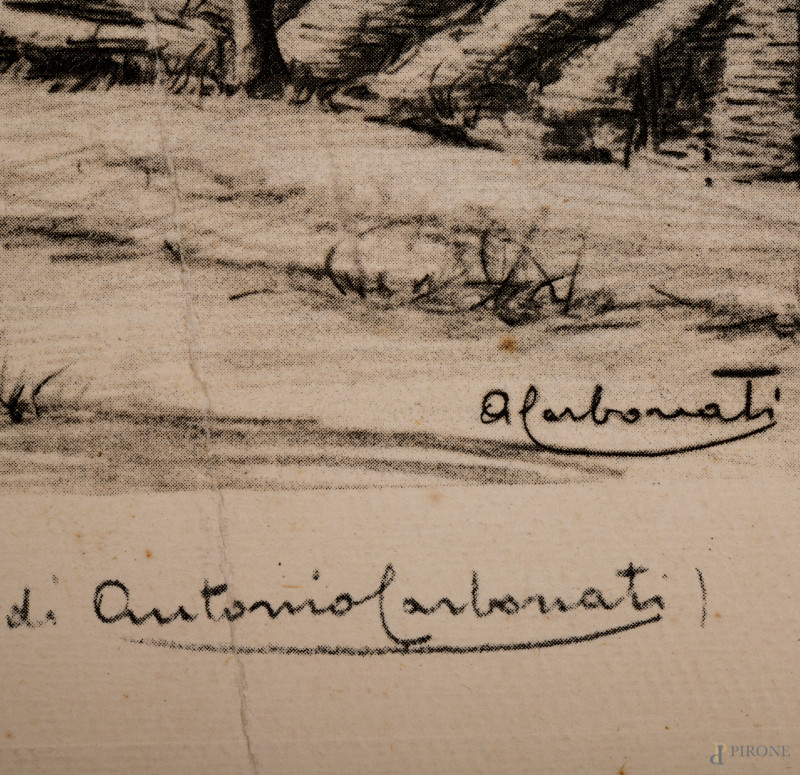 ACarbonati
di Antonio Carbonati)
PIRONE